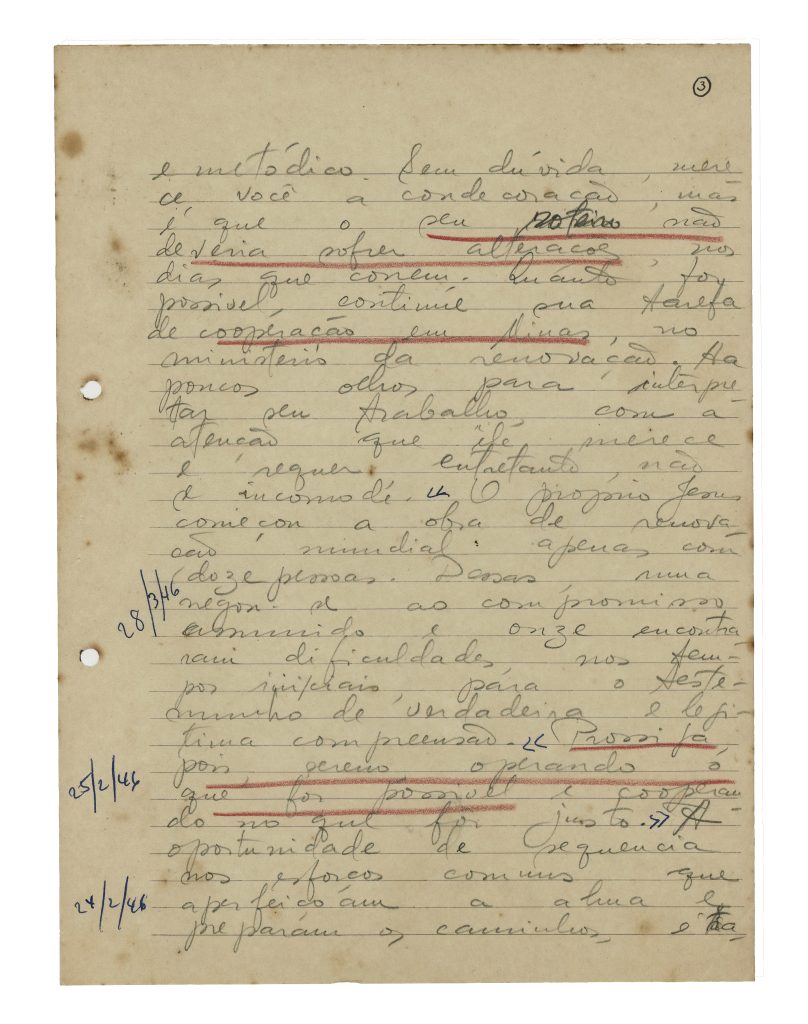 3
e metódico. Sem dúvida, mere
ce, você a condecoração, mas
é que o seu roteiro não
deveria sofrer alterações, nos
dias que correm. Quanto for
possivel, continúe sua tarefa
de cooperação em Minas, no
ministério da renovação. Ha
poucos olhos para interpre-
tar seu trabalho, com a
atenção que ele merece
e requer, entretanto, não
se incomode. " O próprio Jesus
começou a obra de renova-
ção mundial apenas com
doze pessoas. Dessas, uma
negou-se ao compromisso
assumido e onze encontra
ram dificuldades, nos tem-
pos iniciais, para o teste-
munho de verdadeira e legi-
tima compreensão. " Prossiga,
pois, sereno operando o
que for possivel e cooperan
do no que for justo." A
oportunidade de sequencia
nos esforços comuns que
aperfeiçoam a alma e
preparam os caminhos, é
28/3/46
25/2/46
24/2/46